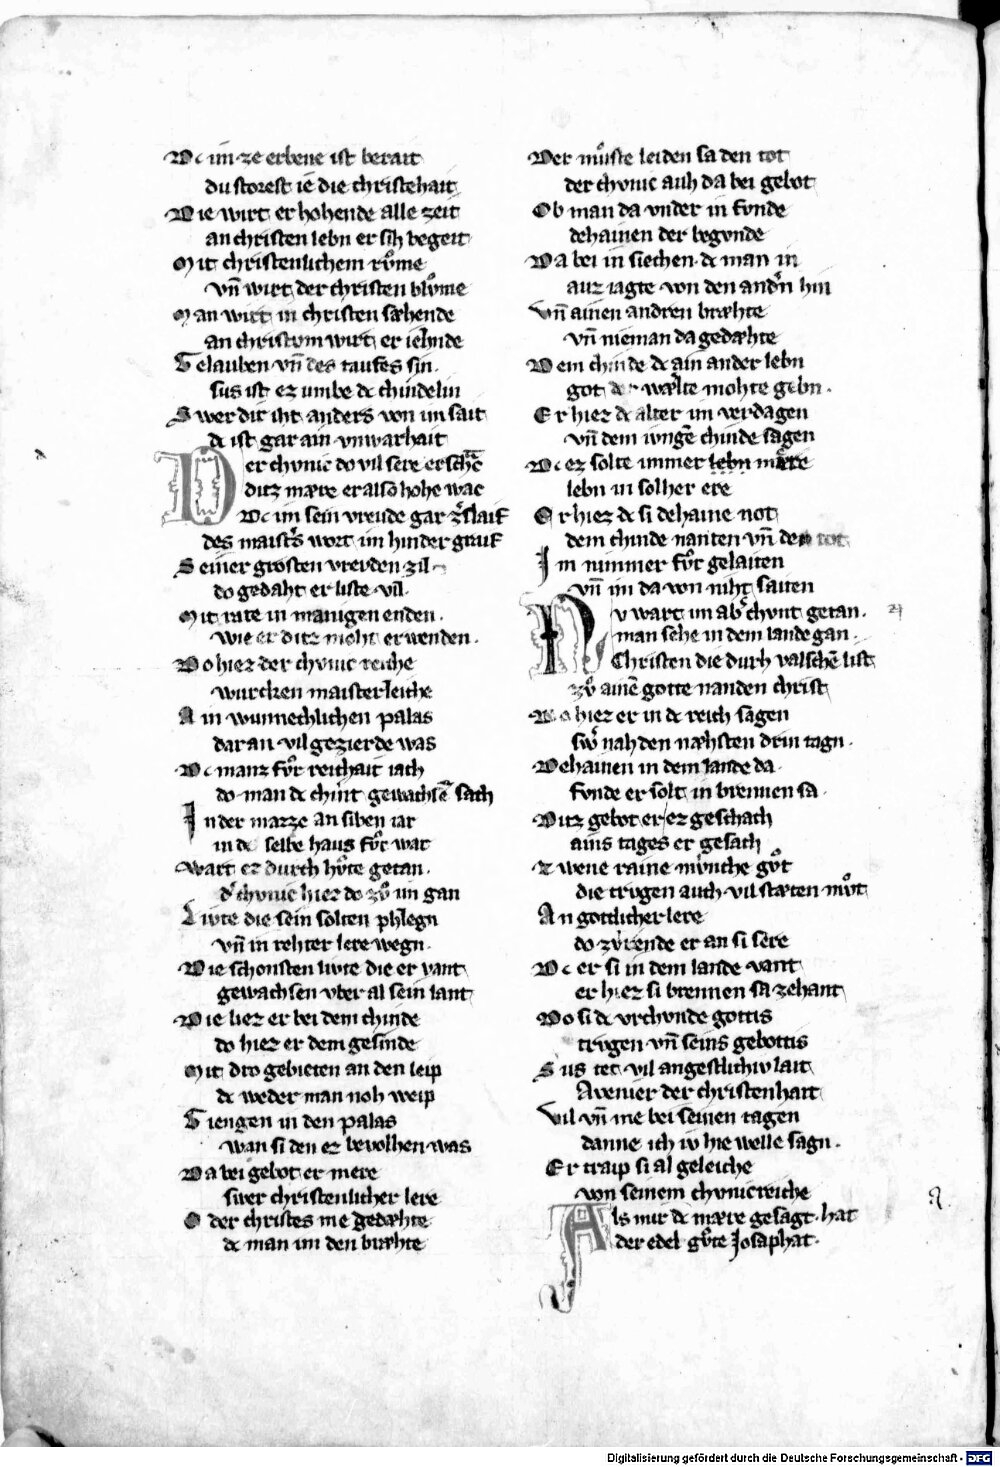 Dc im ze erbene ist berait
du storest ie die christehait
Die wirt er hohende alle zeit
an christen lebn er sih begeit
Mit christenlichem rvͦme
vn̄ wirt der christen blvͦme
Man wirt in christen sæhende
an christom wirt er iehnde
Gelauben vn̄ des taufes sin
sus ist ez umbe dc chindelin
Swer dir iht anders von im sait
dc ist gar ain vnwarhait
Der chvnic do vil sere erschr̄c
ditz mære er also hohe wac
Dc im sein vreude gar zerslaif
des maisters wort im hinder graif
Seiner grosten vrevden zil
do gedaht er liste vil
Mit rate in manigen enden
wie er ditz moht erwenden
Do hiez der chvnic reiche
wurchen maisterleiche
Ain wunnechlichen palas
daran vil gezierde was
Dc manz fvͦr reichait iach
do man dc chint gewachsē sach
In der mazze an siben iar
in dc selbe haus fvͦr war
Wart ez durch hvͦte getan
dˀ chvnic hiez do zvͦ im gan
Livte die sein solten phlegn
vn̄ in rehter lere wegn
Die schonsten livte die er vant
gewachsen vber al sein lant
Die liez er bei dem chinde
do hiez er dem gesinde
Mit dro gebieten an den leip
dc weder man noh weip
Giengen in den palas
wan si den ez bevolhen was
Da bei gebot er mere
swer christenlicher lere
Oder christes me gedæhte
dc man im den bræhte
Der mvͦste leiden sa den tot
der chvnic auh da bei gebot
Ob man da vnder in fvnde
dehainen der begvnde
Da bei in siechen dc man in
auz iagte von den andˀn hin
Vn̄ ainen andren bræhte
vn̄ nieman da gedæhte
Dem chinde dc ain ander lebn
got der wælte mohte gebn
Er hiez dc alter im verdagen
vn̄ dem ivngē chinde sagen
Dc ez solte immer lebn mære
lebn in solher ere
Er hiez dc si dehaine not
dem chinde nanten vn̄ den tot
Im nimmer fvͦr gelaiten
vn̄ im da von niht saiten
Nv wart im abˀ chvnt getan
man sehe in dem lande gan
Christen die durh valschē list
zvͦ ainē gotte nanden christ
Do hiez er in dc reich sagen
swˀ nah den næhsten drin tagn
Dehainen in dem lande da
fvnde er solt in brennen sa
Ditz gebot er ez geschach
ains tages er gesach
Zwene raine mvͤnche gvͦt
die trvgen auch vil stæten mvͦt
An gottlicher lere
do zvrende er an si sere
Dc er si in dem lande vant
er hiez si brennen sa zehant
Do si dc vrchvnde gottis
trvgen vn̄ seins gebottis
Sus tet vil angestlichiv lait
Avenier der christenhait
Vil vn̄ me bei seinen tagen
danne ich iv hie welle sagn
Er traip si al geleiche
von seinem chvnicreiche
Als mir dc mære gesagt hat
der edel gvͦte Josaphat
Digitalisierung gefördert durch die Deutsche Forschungsgemeinschaft - DFG